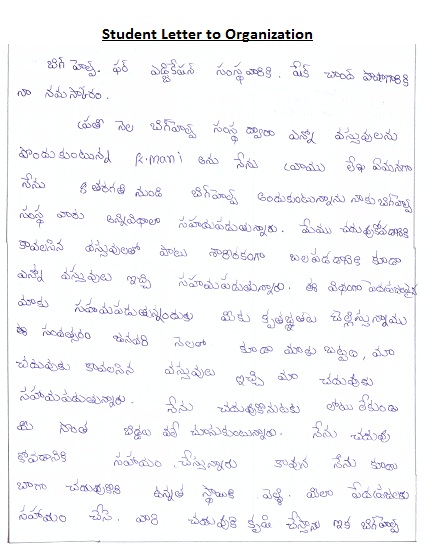 Student Letter to Organization
బిగ్ హెల్ప్. ఫర్ ఎడ్యుకేషన్ సంస్థవారికి. షేక్ చాంద్ పాషాగారికి
నా నమస్కారం.
ప్రతి నెల బిగ్‌హెల్ప్ సంస్థ ద్వారా ఎన్నో వస్తువులను
పొందుకుంటున్న R.mani అను నేను వ్రాయు లేఖ ఏమనగా
నేను 6 తరగతి నుండి బిగ్‌హెల్ప్ అందుకుంటున్నాను నాకు బిగ్‌హెల్ప్
సంస్థ వారు అన్నివిధాలా సహాయపడుతున్నారు. మేము చదువుకోవడానికి
కావలసిన వస్తువులతో పాటు శారీరకంగా బలపడడానికి కూడా
ఎన్నో వస్తువులు ఇచ్చి సహాయపడుతున్నారు. ఈ విధంగా
మాకు సహాయపడుతున్నందుకు మీకు కృతజ్ఞతలు చెల్లిస్తున్నాము
ఈ సంవత్సరం జనవరి నెలలో కూడా మాకు బట్టలు, మా
చదువుకు కావలసిన వస్తువులు ఇచ్చి మా చదువుకు
సహాయపడుతున్నారు. నేను చదువుకొనుటకు లోటు లేకుండా
మీ సొంత బిడ్డలు వలే చూసుకుంటున్నారు. నేను చదువు
కోవడానికి సహాయం చేస్తున్నారు కావున నేను కూడా
బాగా చదువుకొని ఉన్నత స్థాయికి వెళ్ళి. మీలా పేదపిల్లలకు
సహాయం చేసి. వారి చదువుకి కృషి చేస్తాను ఇక బిగ్‌హెల్ప్